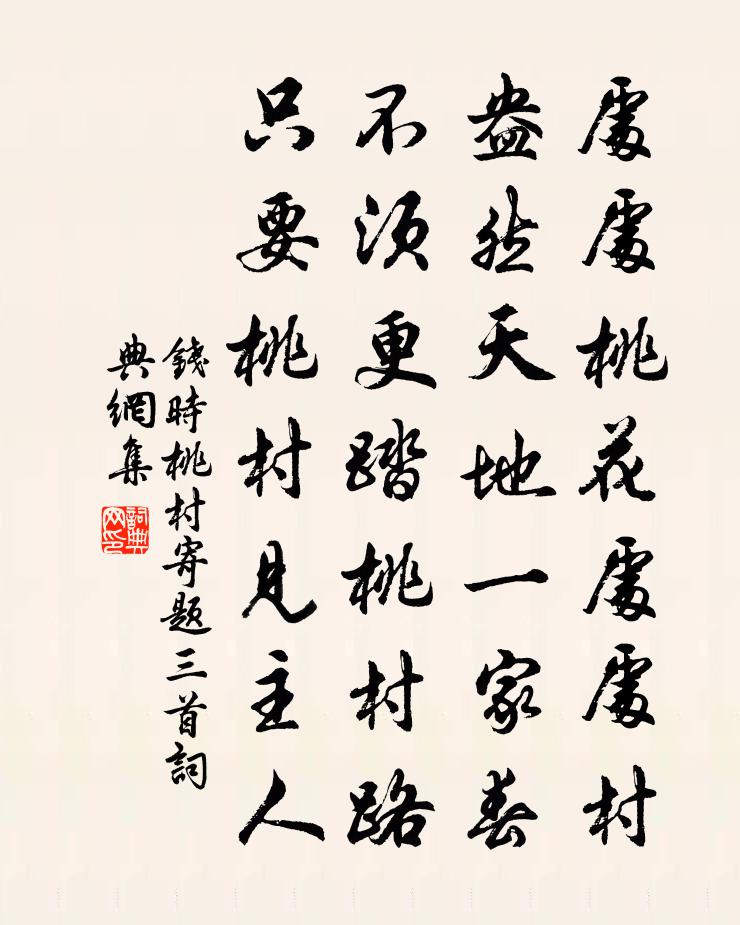 處處桃花處處村
盎然天地一家春
不須更踏桃村路
只要桃村見主人
錢時桃村寄題三首詞
典網集
詞典
网印